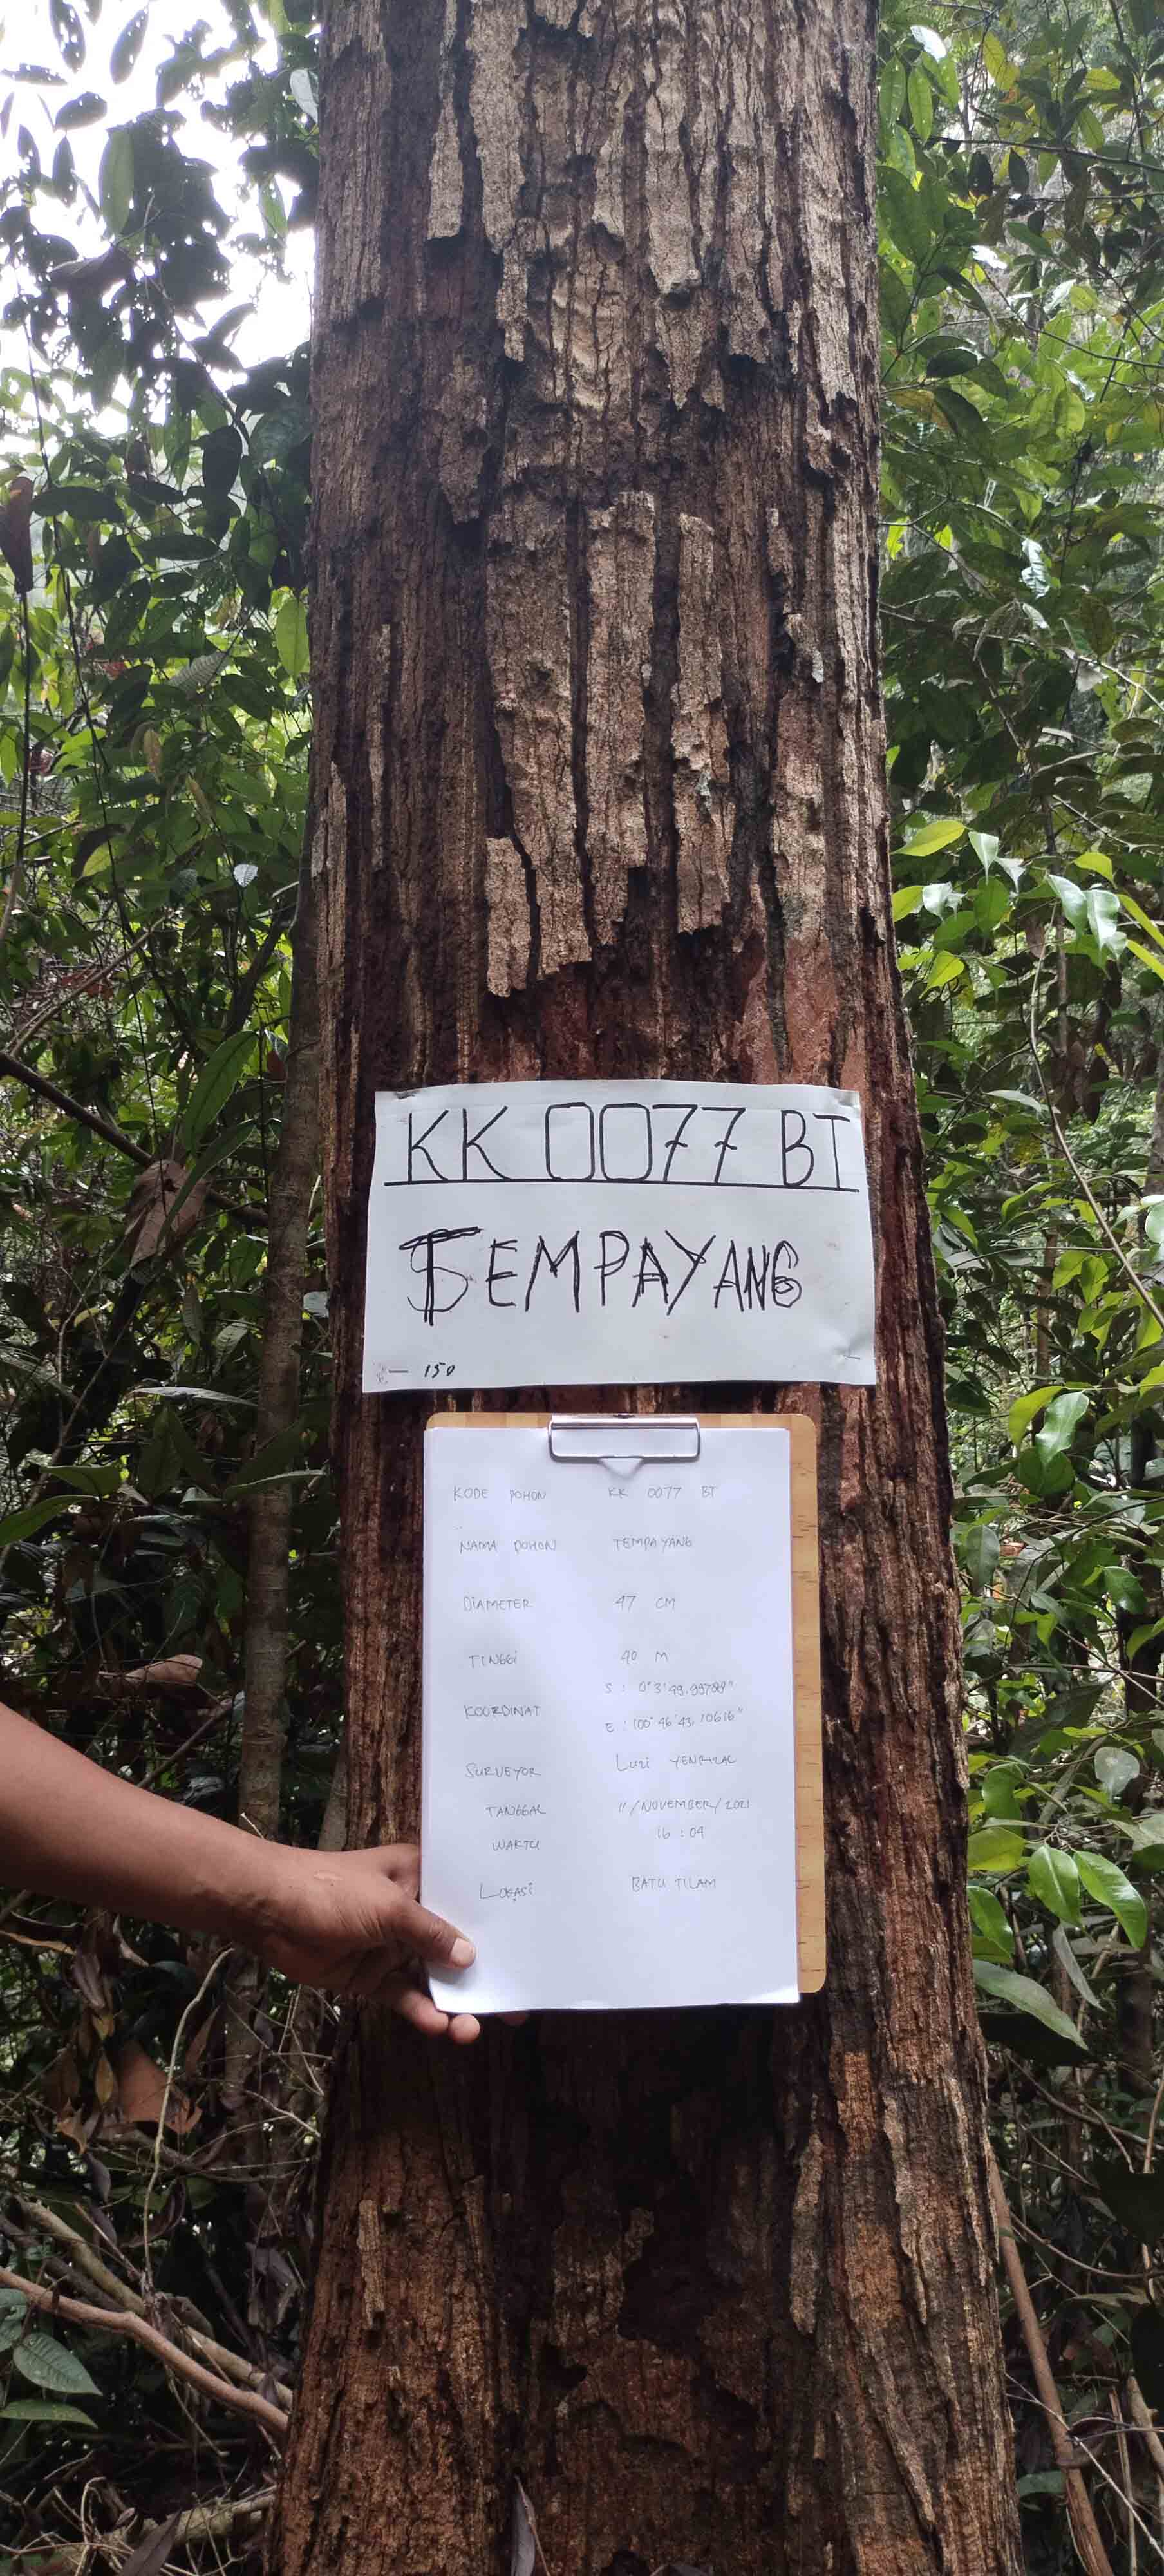 KK 0077 BT
TEMPAYANG
150
KODE POHON KK 0077 BT
NAMA POHON TEMPAYANG
DIAMETER 47 CM
TINGGI 40 M
S : 0°3'49.
KOORDINAT
E : 100°46'43.10616"
SURVEYOR
TANGGAL 11/NOVEMBER/2021
WAKTU 16 : 04
LOKASI BATU TILAM